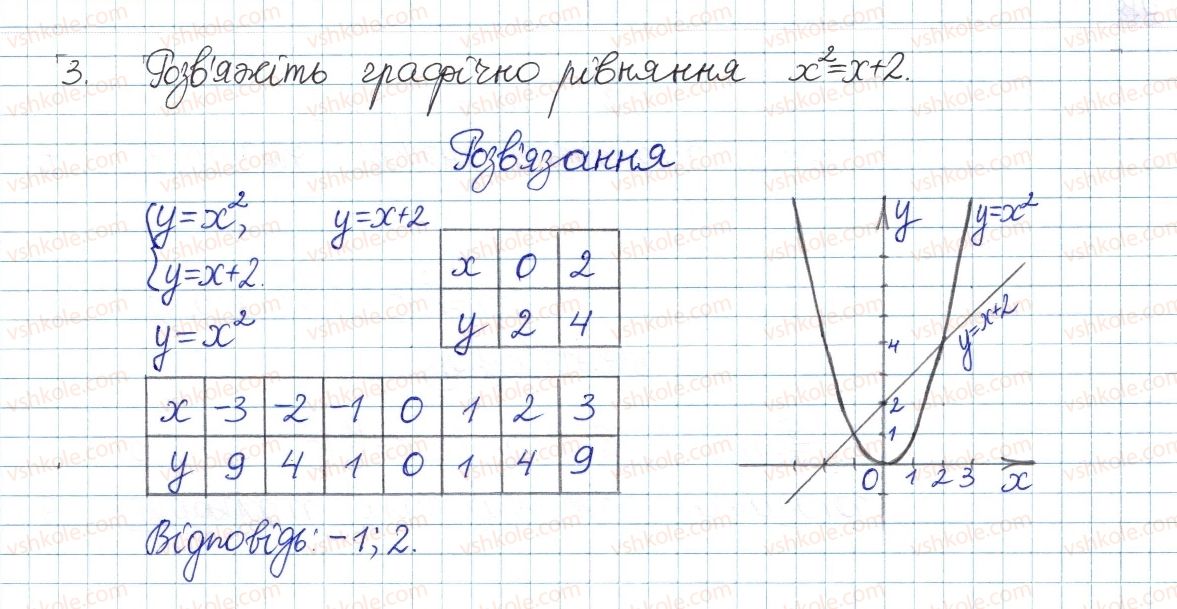 3. Розв'яжіть графічно рівняння x²=x+2.
Розв'язання
{y=x²,
y=x+2.
y=x+2
x 0 2
y 2 4
y=x²
x -3 -2 -1 0 1 2 3
y 9 4 1 0 1 4 9
y
y=x²
y=x+2
4
2
1
0 1 2 3 x
Відповідь: -1; 2.
vshkole.com